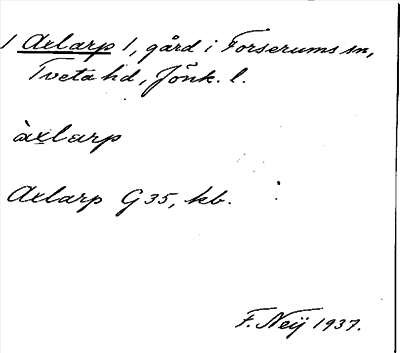 1 Axlarp 1, gård i Forserums sn,
Tveta hd, Jönk. l.
àxlarp
Axlarp G 35, kb.
F. Neij 1937.